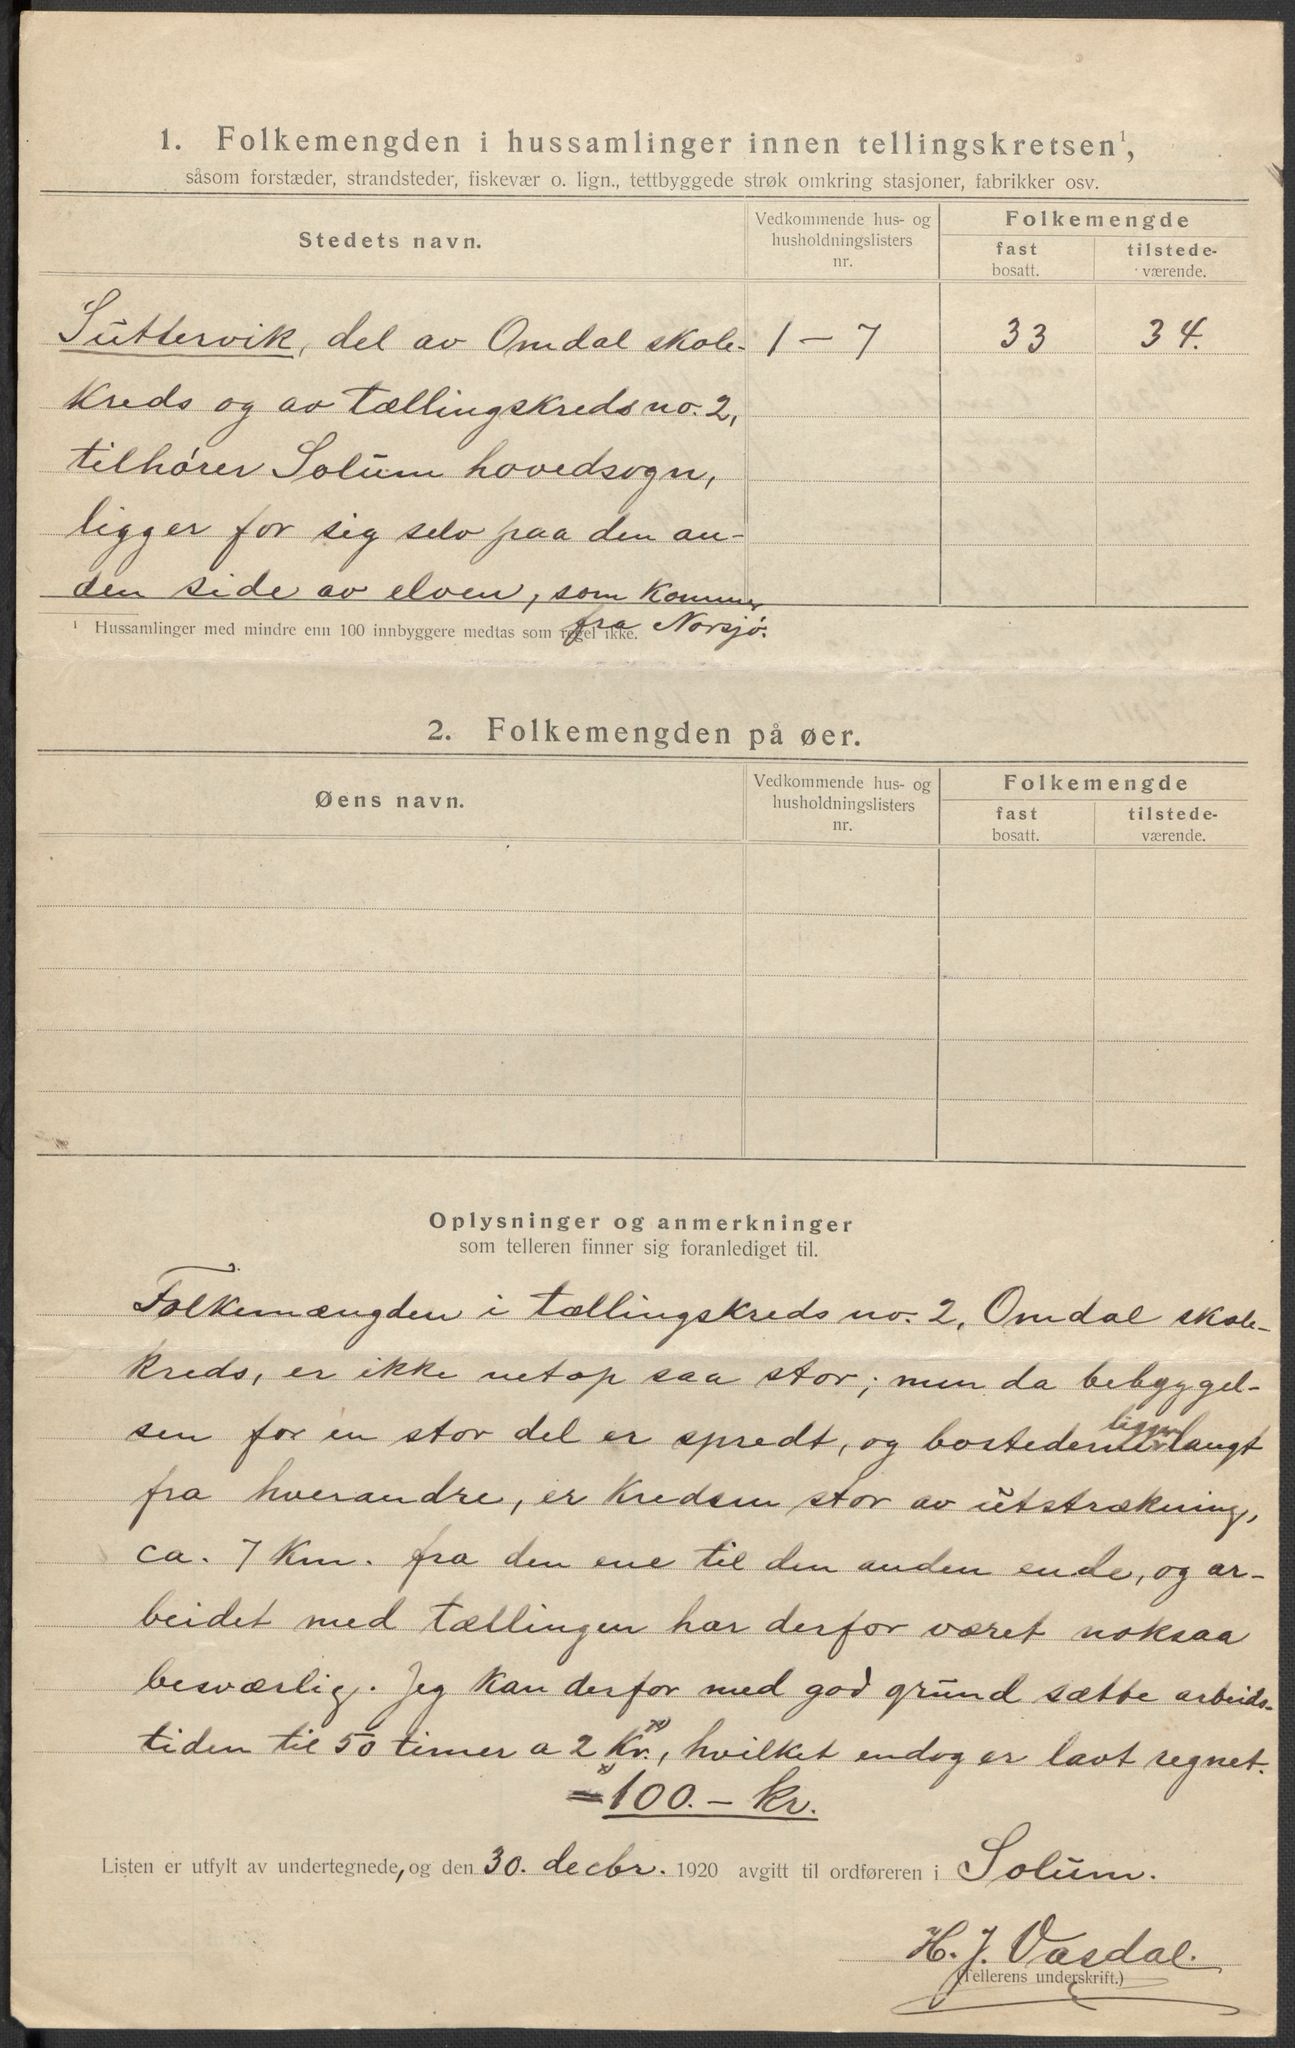 1. Folkemengden i hussamlinger innen tellingskretsen¹,
såsom forstæder, strandsteder, fiskevær o. lign., tettbyggede strøk omkring stasjoner, fabrikker osv.
Stedets navn.
Vedkommende hus- og
husholdningslisters
nr.
Folkemengde
fast
bosatt.
tilstede-
værende.
Suttervik, del av Omdal skole- 1 – 7 33 34.
kreds og av tællingskreds no. 2,
tilhører Solum hovedsogn,
ligger for sig selv paa den an-
den side av elven, som kommer
fra Norsjø.
¹ Hussamlinger med mindre enn 100 innbyggere medtas som regel ikke.
2. Folkemengden på øer.
Øens navn.
Vedkommende hus- og
husholdningslisters
nr.
Folkemengde
fast
bosatt.
tilstede-
værende.
Oplysninger og anmerkninger
som telleren finner sig foranlediget til.
Folkemængden i tællingskreds no. 2, Omdal skole-
kreds, er ikke netop saa stor; men da bebyggel-
sen for en stor del er spredt, og bostederne ligger langt
fra hverandre, er kredsen stor av utstrækning,
ca. 7 km. fra den ene til den anden ende, og ar-
beidet med tællingen har derfor været noksaa
besværlig. Jeg kan derfor med god grund sætte arbeids-
tiden til 50 timer a 2 kr. x), hvilket endog er lavt regnet.
x) = 100.– kr.
Listen er utfylt av undertegnede, og den 30. decbr. 1920 avgitt til ordføreren i Solum.
H. J. Vasdal.
(Tellerens underskrift.)